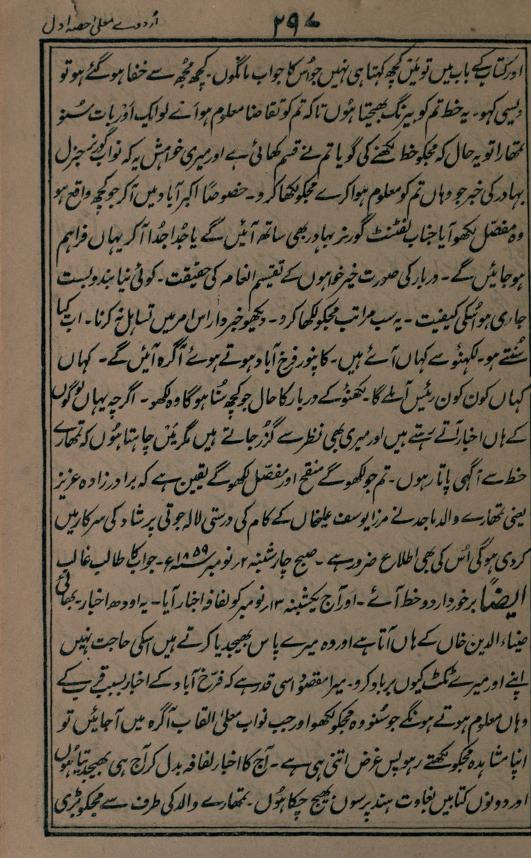 اردوے معلیٰ حصہ اول
۲۹۷
اور کتاب کے باب میں تو میں کچھ کہتا ہی نہیں جو اُس کا جواب مانگوں۔ کچھ مجھ سے خفا ہو گئے ہو تو
ویسی کہو۔ یہ خط تم کو بیرنگ بھیجتا ہوں تاکہ تم کو تقاضا معلوم ہو اے لو ایک اور بات سنو
تمھارا تو یہ حال کہ مجکو خط لکھنے کی گویا تم نے قسم کھائی ہے اور میری خواہش یہ کہ نواب گورنر جنرل
بہادر کی خبر جو وہاں تم کو معلوم ہوا کرے مجکو لکھا کرو۔ خصوصاً اکبر آباد میں آکر جو کچھ واقع ہو
وہ مفصل لکھو آیا جناب لفٹنٹ گورنر بہادر بھی ساتھ آئیں گے یا جُدا جُدا آکر یہاں فراہم
ہو جائیں گے۔ دربار کی صورت خیر خواہوں کے تقسیم انعام کی حقیقت۔ کوئی نیا بندوبست
جاری ہو اُسکی کیفیت۔ یہ سب مراتب مجکو لکھا کرو۔ دیکھو خبردار اس امر میں تساہل نہ کرنا۔ اب کیا
سُنتے ہو۔ لکھنؤ سے کہاں آئے ہیں۔ کانپور فرخ آباد ہوتے ہوئے آگرہ آئیں گے۔ کہاں
کہاں کون کون رئیس آملے گا۔ لکھنؤ کے دربار کا حال جو کچھ سنا ہو گا وہ لکھو۔ اگرچہ یہاں لوگوں
کے ہاں اخبار آتے رہتے ہیں اور میری بھی نظر سے گزر جاتے ہیں مگر میں چاہتا ہوں کہ تمھارے
خط سے آگہی پاتا رہوں۔ تم جو لکھو گے منقح اور مفصل لکھو گے یقین ہے کہ برادر زادہ عزیز
یعنی تمھارے والد ماجد نے مرزا یوسف علیخاں کے کام کی درستی لالہ جوتی پرشاد کی سرکار میں
کردی ہو گی اُس کی بھی اطلاع ضرور ہے۔ صبح چار شنبہ ۲ نومبر ۱۸۵۹ء۔ جواب کا طالب غالب
ایضاً برخوردار دو خط آئے۔ اور آج یکشنبہ ۱۳ نومبر کو لفافہ اخبار آیا۔ یہ اودھ اخبار بھائی
ضیاء الدین خاں کے ہاں آتا ہے اور وہ میرے پاس بھیجدیا کرتے ہیں اسکی حاجت نہیں
اپنے اور میرے ٹکٹ کیوں برباد کرو۔ میرا مقصود اسی قدر ہے کہ فرخ آباد کے اخبار بسبب قرب کے
وہاں معلوم ہوتے ہونگے جو سنو وہ مجکو لکھو اور جب نواب معلیٰ القاب آگرہ میں آجائیں تو
اپنا مشاہدہ مجکو لکھتے رہو بس غرض اتنی ہی ہے۔ آج کا اخبار لفافہ بدل کر آج ہی بھیجدیتا ہوں
اور دونوں کتابیں بغاوت ہند پرسوں بھیج چکا ہوں۔ تمھارے والد کی طرف سے مجکو بڑی